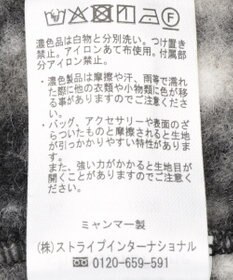 濃色品は白物と分別洗い。つけ置き
禁止。アイロンあて布使用。付属部
分アイロン禁止。
・濃色製品は摩擦や汗、雨等で濡れ
た際に他の衣類や小物類に色が移
る事がありますのでご注意くださ
い。
・バッグ、アクセサリーや表面のざ
らついたものと摩擦されると生地
が引っかかりやすい特性がありま
す。
また、強い力がかかると生地目が
開くことがありますのでご注意く
ださい。
ミャンマー製
(株)ストライプインターナショナル
0120-659-591